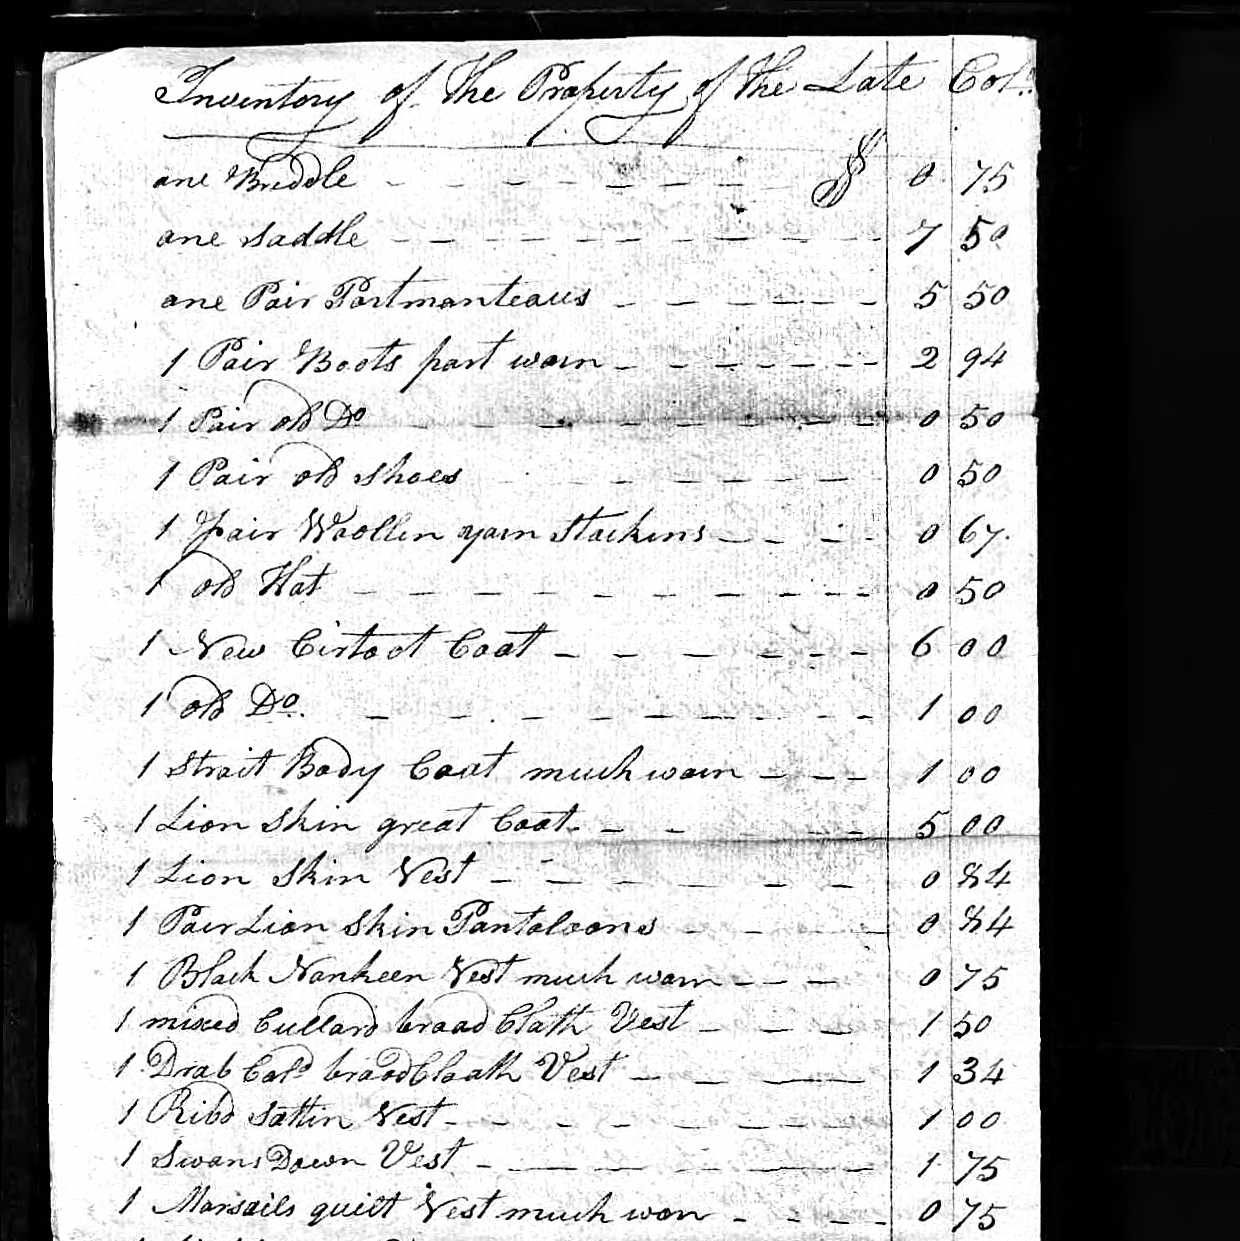 Inventory of the Property of the Late Col.
one Briddle $ 0 75
one Saddle 7 50
one Pair Portmanteaus 5 50
1 Pair Boots part worn 2 94
1 Pair old Do 0 50
1 Pair old Shoes 0 50
1 pair Woollen yarn Stockins 0 67
1 old Hat 0 50
1 New Cirtoot Coat 6 00
1 old Do. 1 00
1 Strait Body Coat much worn 1 00
1 Lion Skin great Coat 5 00
1 Lion Skin Vest 0 84
1 Pair Lion Skin Pantaloons 0 84
1 Black Nankeen Vest much worn 0 75
1 mixed Cullard broad Cloth Vest 1 50
1 Drab Cold broad Cloath Vest 1 34
1 Ribd Sattin Vest 1 00
1 Swans Down Vest 1 75
1 Marsails quilt Vest much worn 0 75